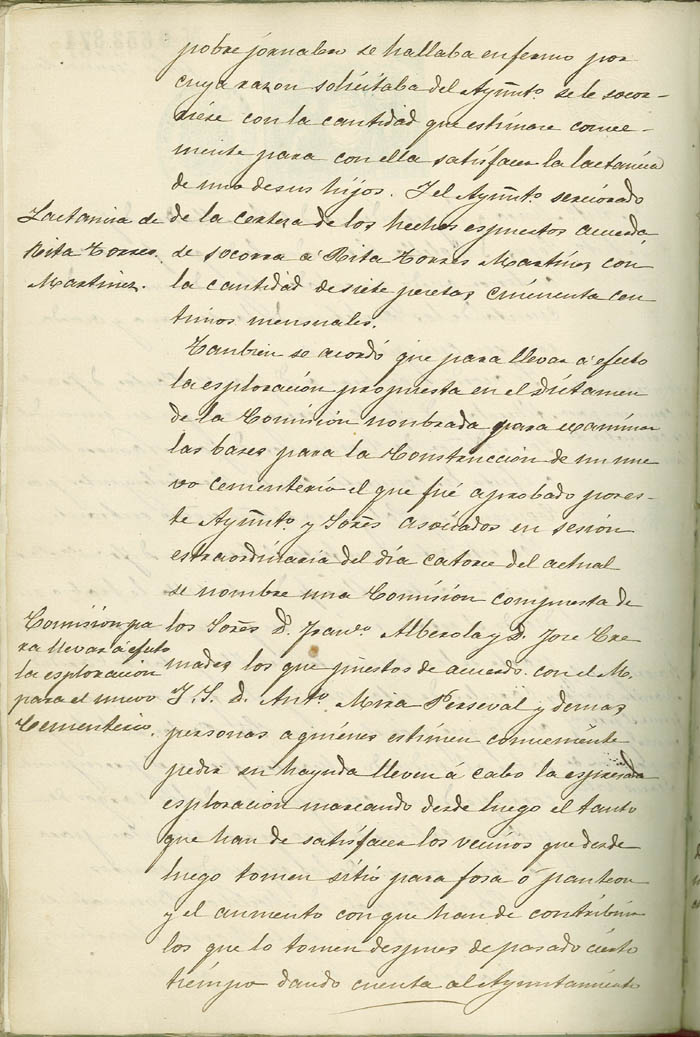 pobre jornalero se hallaba enfermo por
cuya razon solicitaba del Ayũnto. se le socor-
riese con la cantidad que estimare conve-
niente para con ella satisfacer la lactancia
de uno de sus hijos. I el Ayũnto. serciorado
Lactancia de
Rita Torres
Martinez.
de la certeza de los hechos espuestos acuerda
se socorra á Rita Torres Martinez con
la cantidad de siete pesetas cincuenta cen
timos mensuales.
Tanbien se acordó que para llevar á efecto
la esploración propuesta en el Dictamen
de la Comisión nonbrada para examinar
las bases para la Construcción de un nue
vo cementerio el que fué aprobado por es-
te Ayũnto. y Sores. asociados en sesión
estraordinaria del dia catorce del actual
se nombre una Comisión compuesta de
Comisión pa
ra llevar á efecto
la esploración
para el nuevo
Cementerio.
los Sores. D. Franco. Alberola y D. Jose Cre
mades, los que puestos de acuerdo con el M.
I. S. D. Anto. Mira Perseval y demas
personas a quienes estimen conveniente
pedir su hayuda lleven á cabo la espresada
esploración marcando desde luego el tanto
que han de satisfacer los vecinos que desde
luego tomen sitio para fosa ó panteon
y el aumento con que han de contribuir
los que lo tomen despues de pasado cierto
tiempo dando cuenta al Ayuntamiento